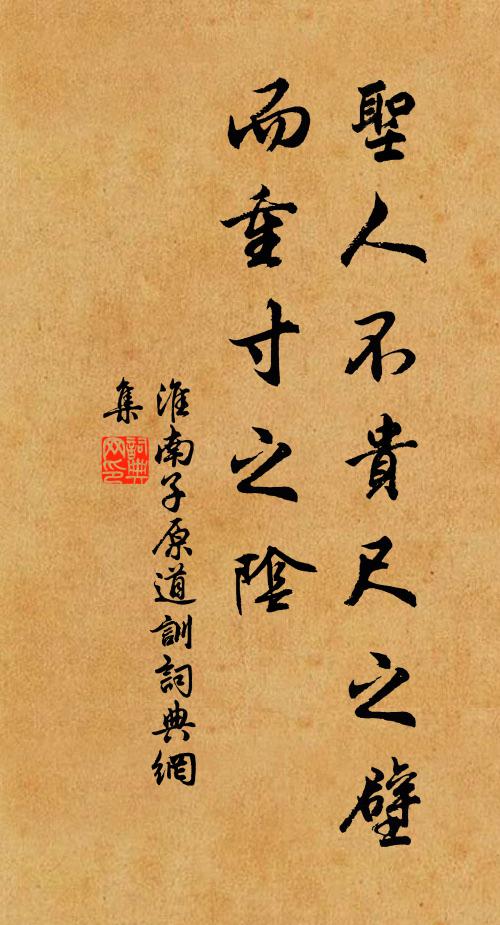 聖人不貴尺之璧
而重寸之陰
淮南子原道訓詞典網
集